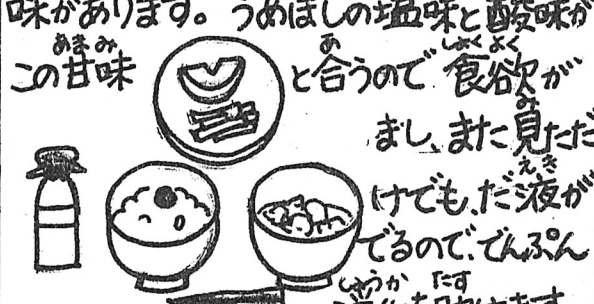 味があります。うめぼしの塩味と酸味が
この甘味と合うので食欲が
まし、また見ただ
けでも、だ液が
でるので、でんぷん